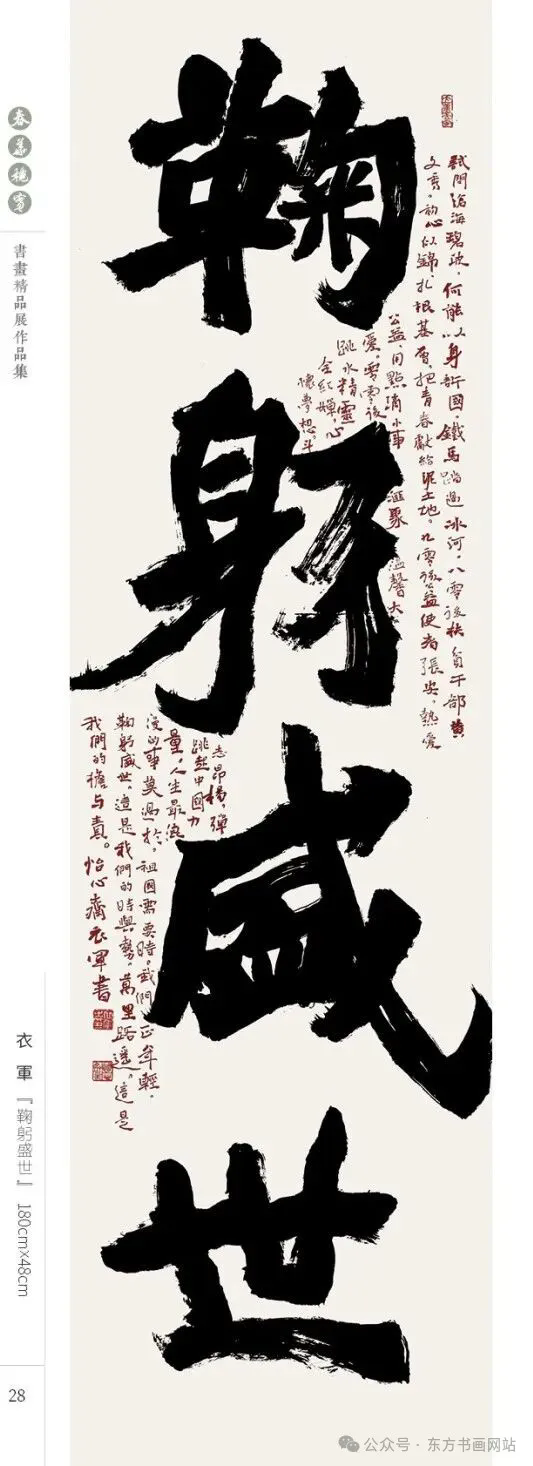 鞠躬盛世
試問滄海碧波，何能以身許國，鐵馬踏過冰河，八零後扶貧干部黄
文秀，初心似錦，扎根基層，把青春獻給泥土地。九零後公益使者張安，熱愛
公益，用點滴小事匯聚温馨大
愛，零零後
跳水精靈
全紅嬋，心
懷夢想，斗
志昂楊，彈
跳起中國力
量，人生最浪
漫的事莫過於，祖国需要時，我們正年輕，
鞠躬盛世，這是我們的時與勢，萬里路遥，這是
我們的擔与責。怡心齋衣軍書
春華穗實
書畫精品展作品集
衣軍『鞠躬盛世』 180cm×48cm
28
公众号·东方书画网站